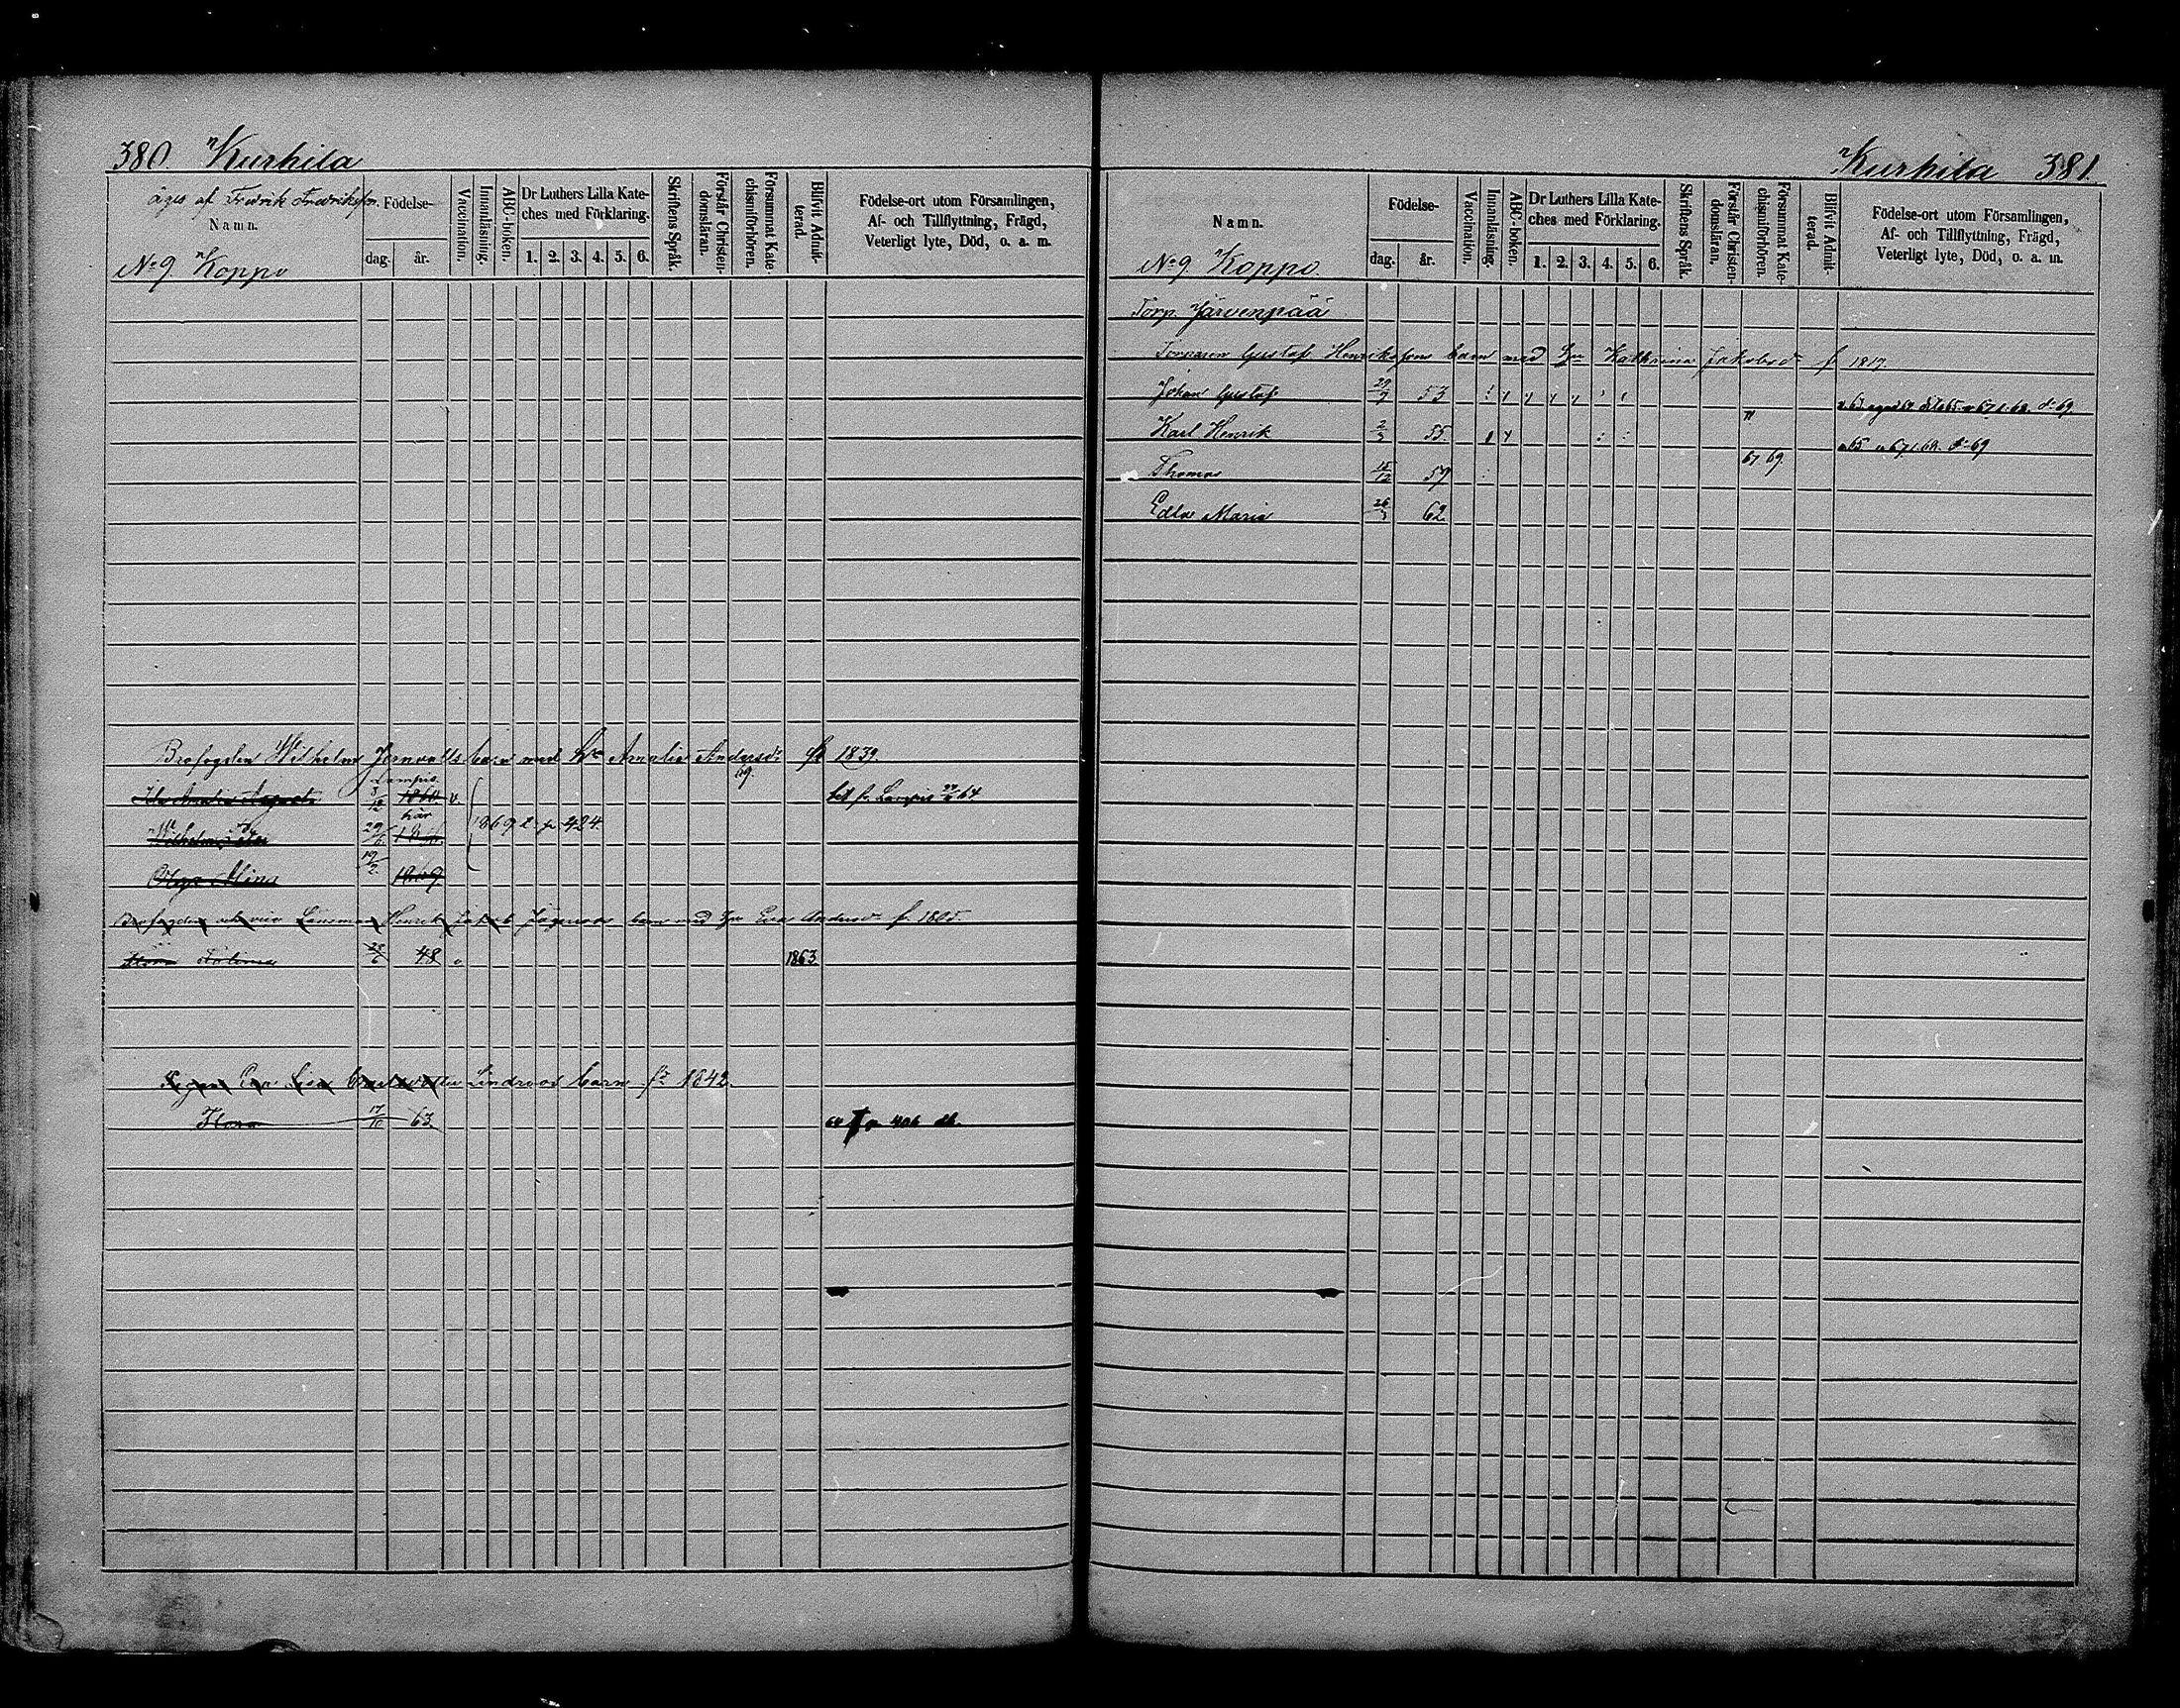 380. Kurhila
äges af Fredrik Fredriksson.
Namn.
Födelse-
dag. år.
Vaccination.
Innanläsning.
ABC-boken.
Dr Luthers Lilla Kate-
ches med Förklaring.
1. 2. 3. 4. 5. 6.
Skriftens Språk.
Förstår Christen-
domsläran.
Försummat Kate-
chismiförhören.
Blifvit Admit-
terad.
Födelse-ort utom Församlingen,
Af- och Tillflyttning, Frägd,
Veterligt lyte, Död, o. a. m.
No 9. Koppo
Wilhelm barn med Amalia Andersdr 1839.
69.
Lampis
Amalia 3/12 1860 v. fr. Lampis 64
här
1869 p 424.
Wilhelm 29
Olga Alina 19/2 1869
Henrik barn med Eva Andersdr f.
Flora 28/6 48 v 1863.
Eva Lisa Lindroos barn f. 1842.
Flora 17/10 63 p 406
Kurhila 381.
Namn.
Födelse-
dag. år.
Vaccination.
Innanläsning.
ABC-boken.
Dr Luthers Lilla Kate-
ches med Förklaring.
1. 2. 3. 4. 5. 6.
Skriftens Språk.
Förstår Christen-
domsläran.
Försummat Kate-
chismiförhören.
Blifvit Admit-
terad.
Födelse-ort utom Församlingen,
Af- och Tillflyttning, Frägd,
Veterligt lyte, Död, o. a. m.
No 9. Koppo.
Torp. Järvenpää
Torparen Gustaf Henrikssons barn med Katharina Jakobsdr f. 1817.
Johan Gustaf 29/7 53 69.
Karl Henrik 2/3 55. 69
67 69.
Thomas 15/12 57
Edla Maria 26 62.